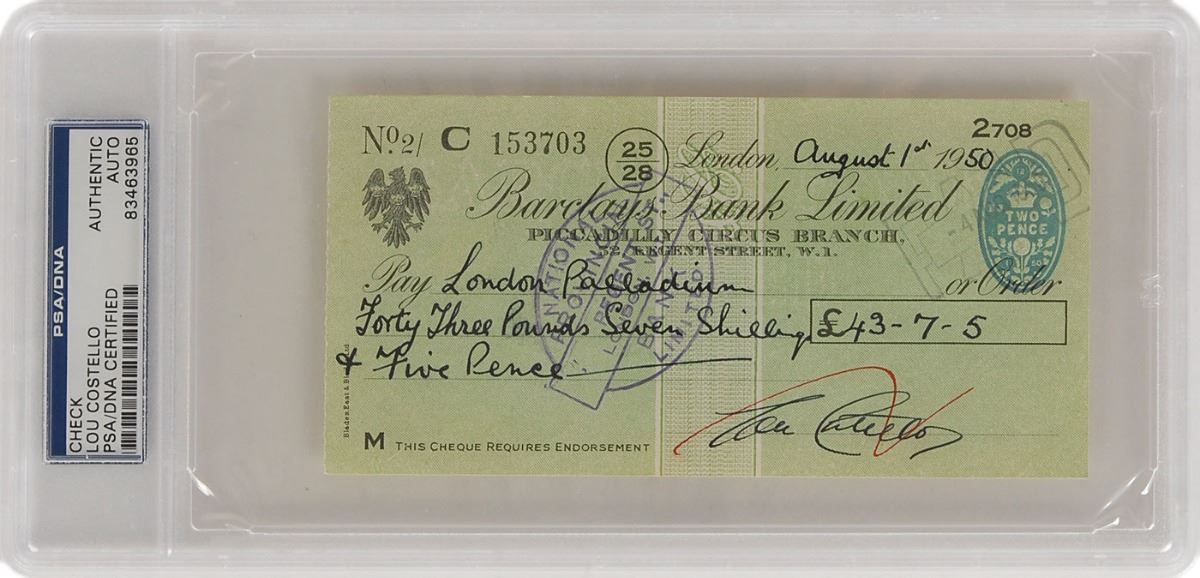 PSA/DNA
CHECK
LOU COSTELLO
PSA/DNA CERTIFIED
AUTHENTIC
AUTO
83463965
2708
No. 2/ C 153703
25
28
London, August 1st 1950
Barclays Bank Limited
PICCADILLY CIRCUS BRANCH,
52, REGENT STREET, W.1.
TWO
PENCE
Pay London Palladium or Order
Forty Three Pounds Seven Shillings £43-7-5
& Five Pence
NATIONAL
PROVINCIAL
REGENT ST.
LONDON W.
BANK
LIMITED
Lou Costello
M THIS CHEQUE REQUIRES ENDORSEMENT